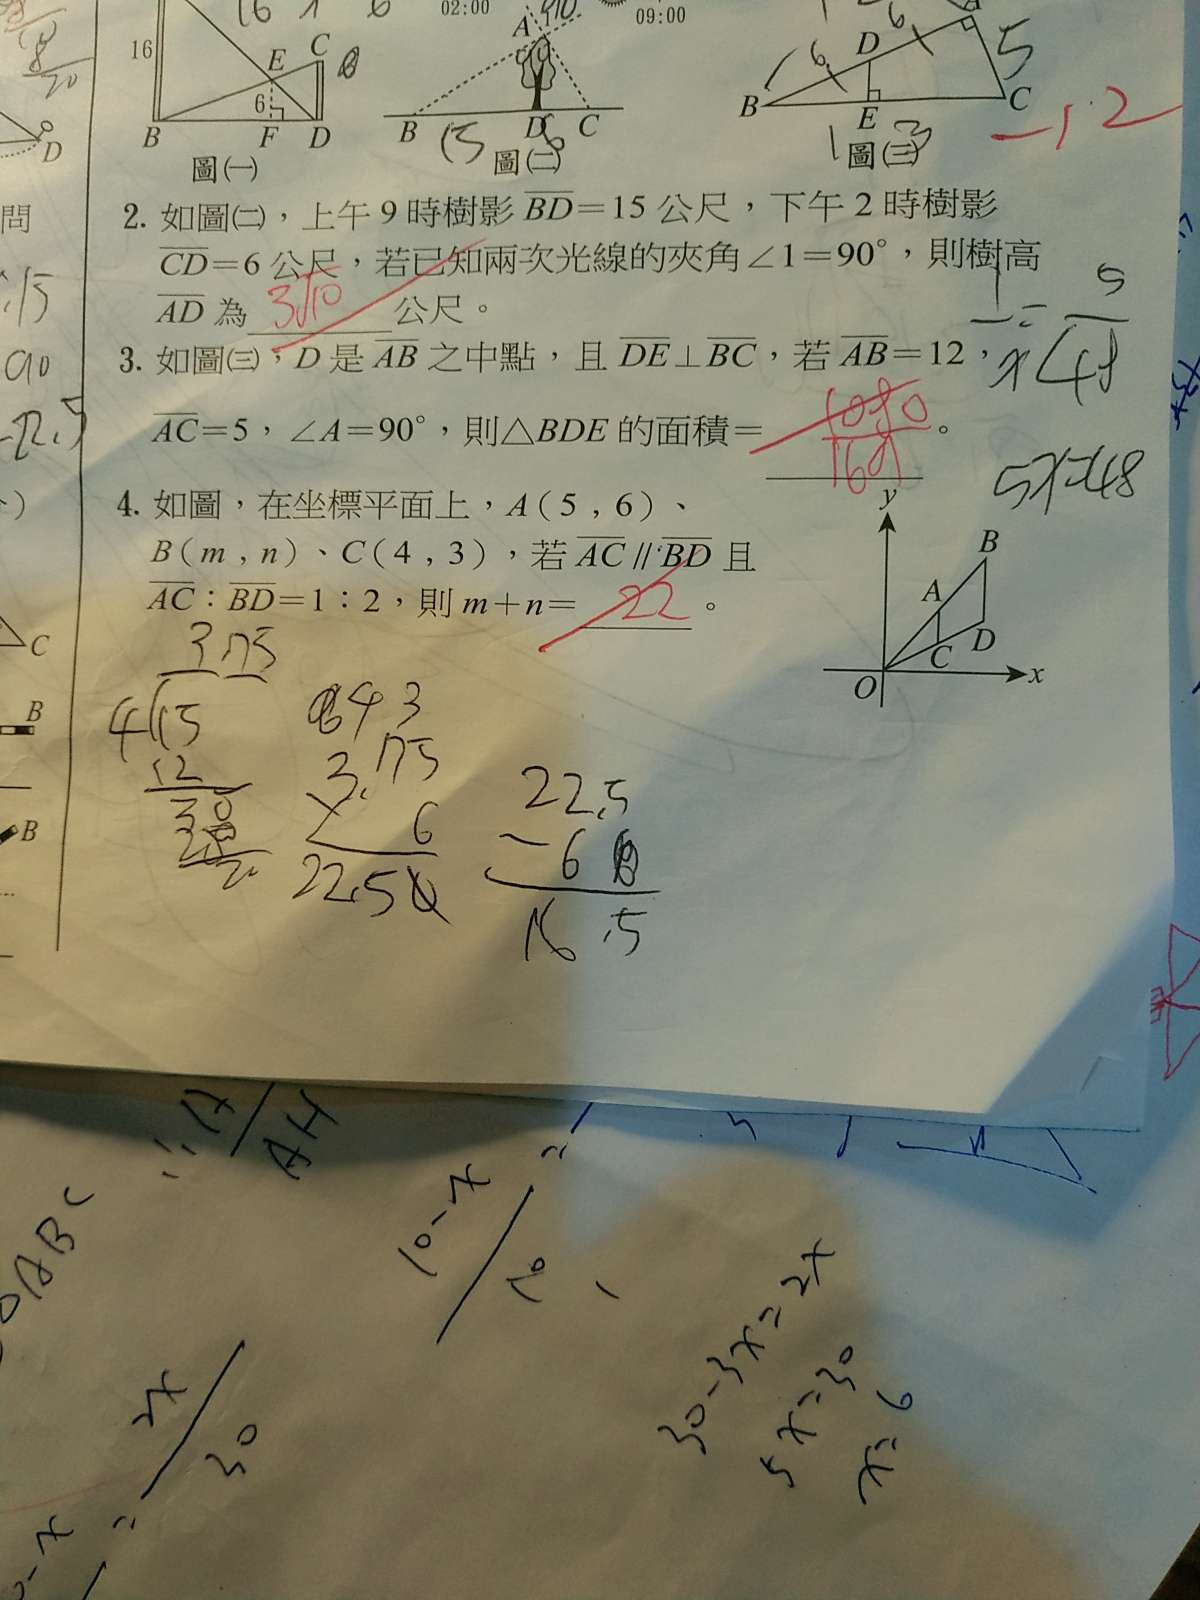 02:00
09:00
16
E
C
6
B
F
D
圖㈠
A
B
D
C
15
圖㈡
D
6
5
B
E
C
圖㈢
-1.2
2. 如圖㈡，上午 9 時樹影 BD＝15 公尺，下午 2 時樹影
CD＝6 公尺，若已知兩次光線的夾角∠1＝90°，則樹高
AD 為 3√10 公尺。
3. 如圖㈢，D 是 AB 之中點，且 DE⊥BC，若 AB＝12，
AC＝5，∠A＝90°，則△BDE 的面積＝ 。
5x=48
4. 如圖，在坐標平面上，A(5 , 6)、
B(m , n)、C(4 , 3)，若 AC // BD 且
AC：BD＝1：2，則 m＋n＝ 22 。
y
B
A
C
D
O
x
3.75
4
15
12
30
3.75
6
22.5
22.5
- 6
16.5
問
D
C
B
B
ABC
AH
10-x
10
2x
30
30-3x=2x
5x=30
x=6